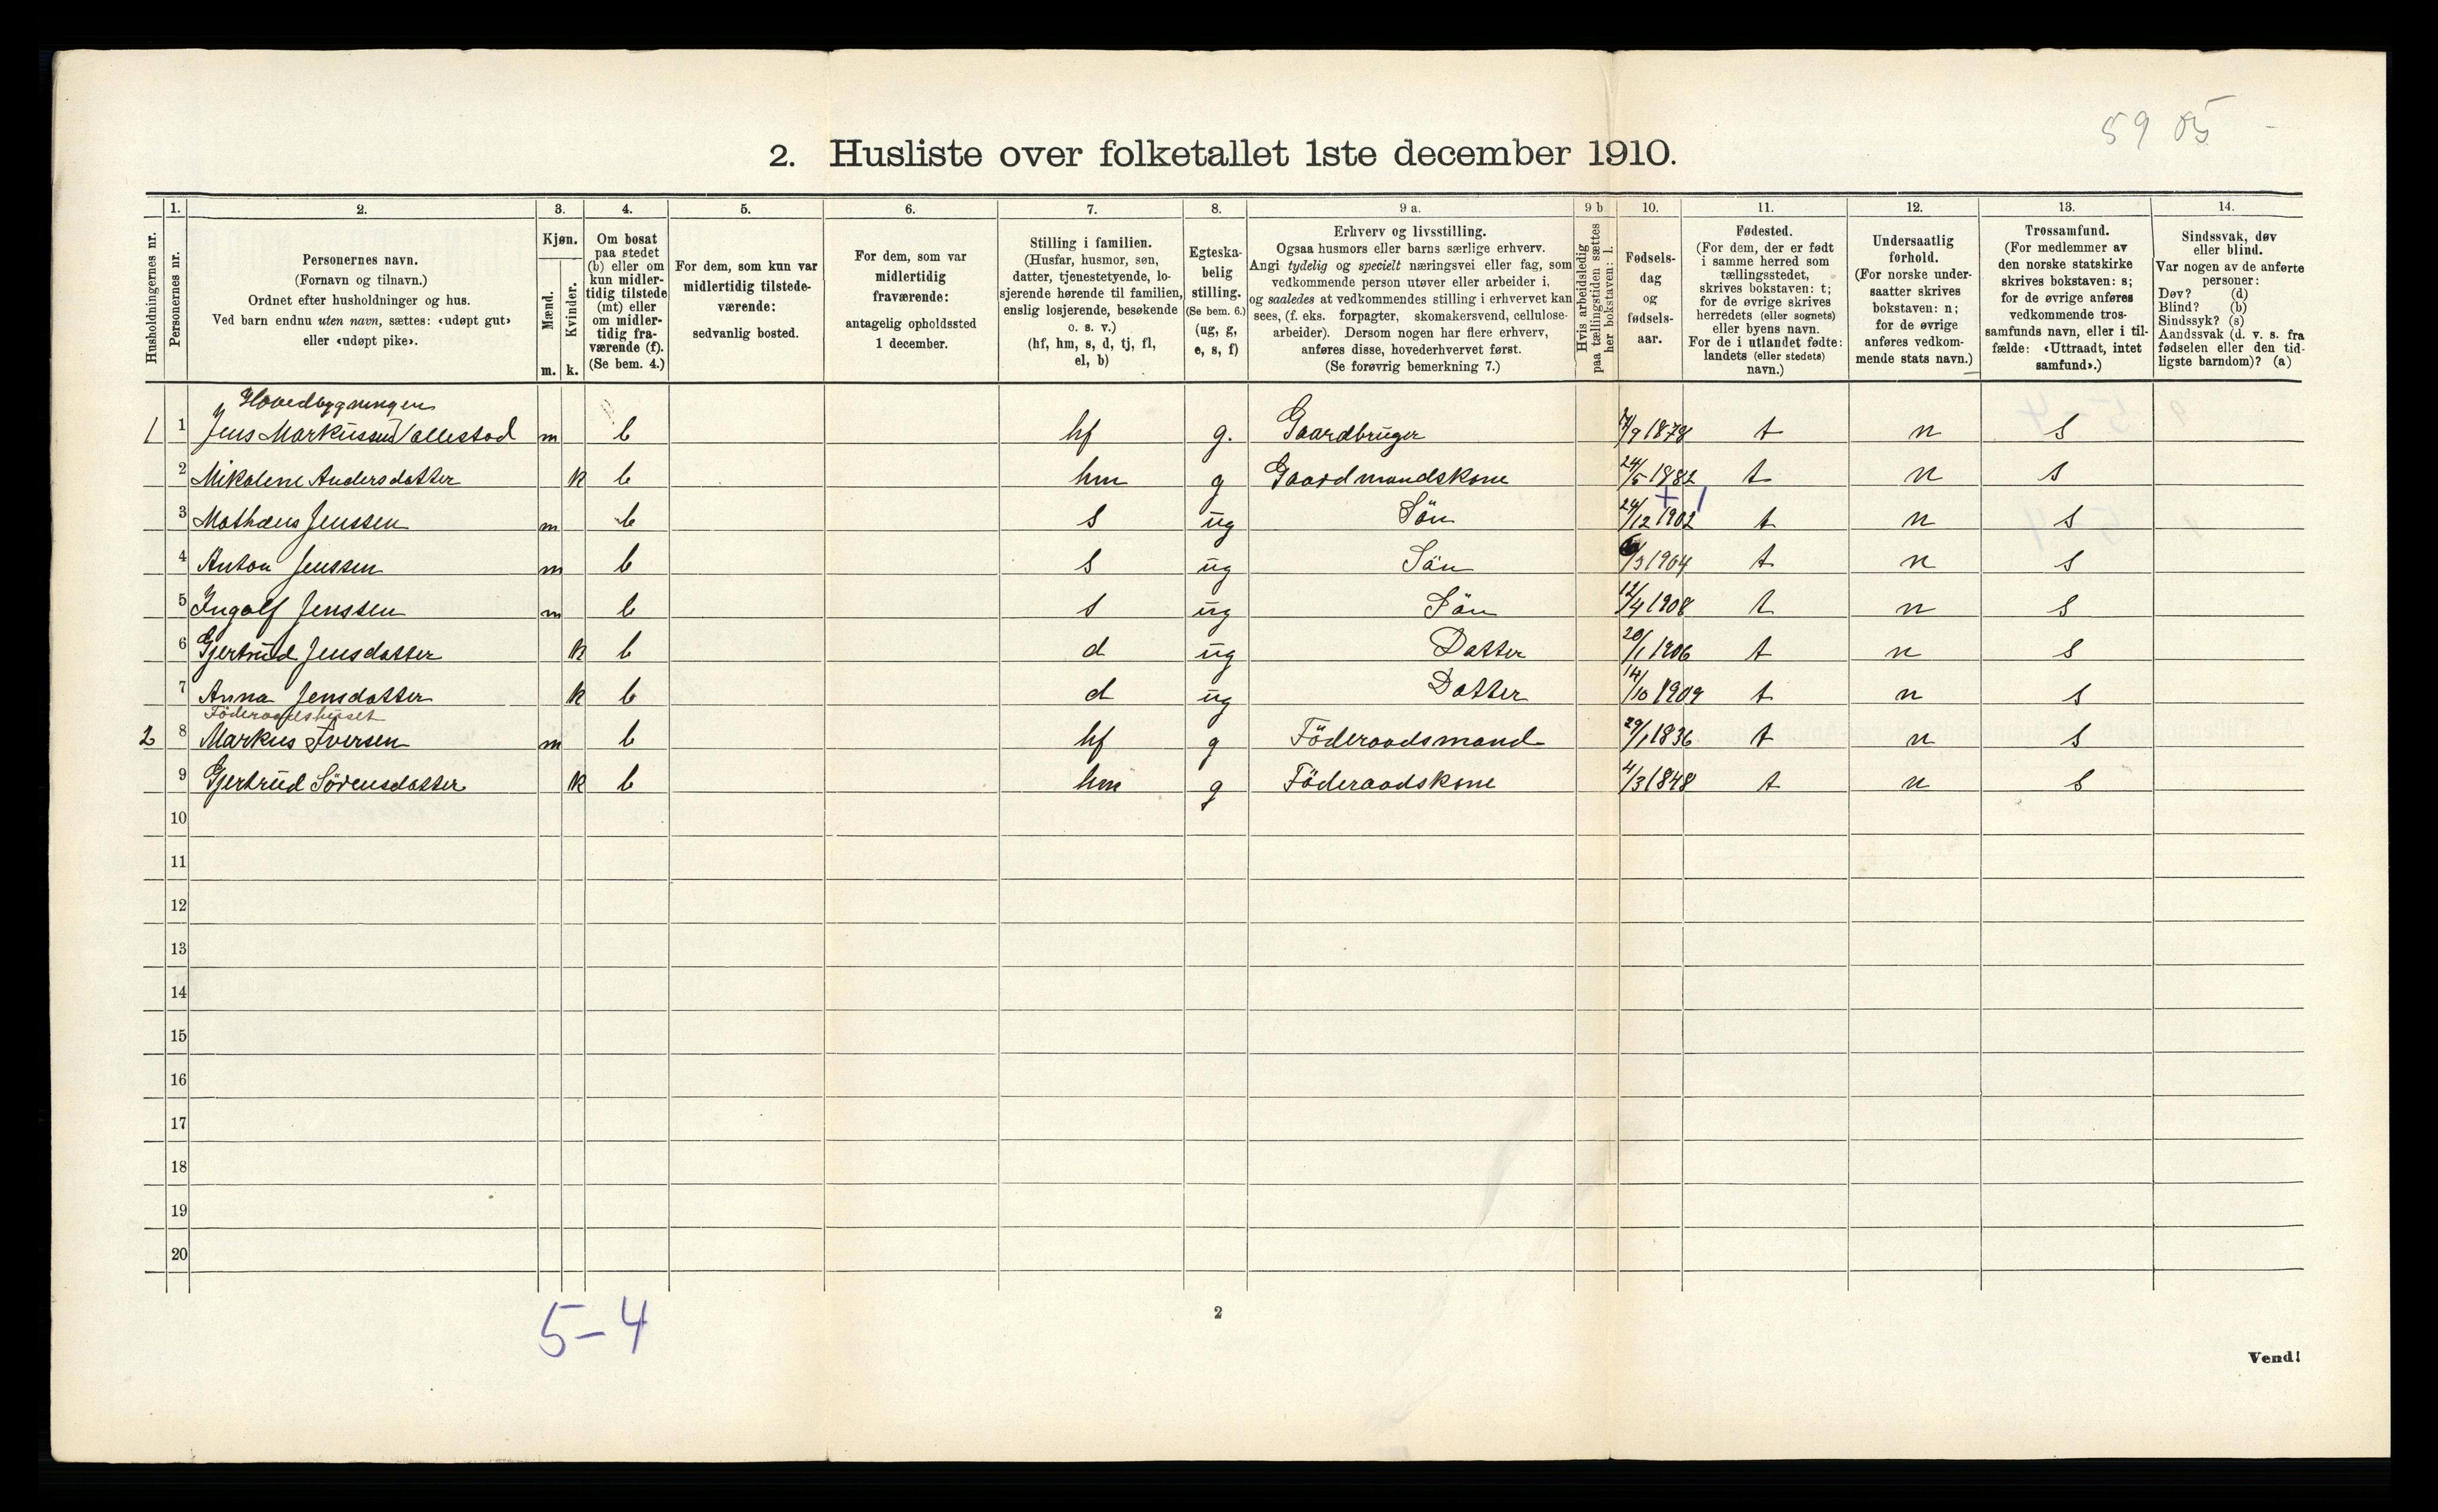 59 05 -
2. Husliste over folketallet 1ste december 1910.
1. 2. 3. 4. 5. 6. 7. 8. 9 a. 9 b 10. 11. 12. 13. 14.
Husholdningernes nr.
Personernes nr.
Personernes navn.
(Fornavn og tilnavn.)
Ordnet efter husholdninger og hus.
Ved barn endnu uten navn, sættes: «udøpt gut»
eller «udøpt pike».
Kjøn.
Mænd.
Kvinder.
m. k.
Om bosat
paa stedet
(b) eller om
kun midler-
tidig tilstede
(mt) eller
om midler-
tidig fra-
værende (f).
(Se bem. 4.)
For dem, som kun var
midlertidig tilstede-
værende:
sedvanlig bosted.
For dem, som var
midlertidig
fraværende:
antagelig opholdssted
1 december.
Stilling i familien.
(Husfar, husmor, søn,
datter, tjenestetyende, lo-
sjerende hørende til familien,
enslig losjerende, besøkende
o. s. v.)
(hf, hm, s, d, tj, fl,
el, b)
Egteska-
belig
stilling.
(Se bem. 6.)
(ug, g,
e, s, f)
Erhverv og livsstilling.
Ogsaa husmors eller barns særlige erhverv.
Angi tydelig og specielt næringsvei eller fag, som
vedkommende person utøver eller arbeider i,
og saaledes at vedkommendes stilling i erhvervet kan
sees, (f. eks. forpagter, skomakersvend, cellulose-
arbeider). Dersom nogen har flere erhverv,
anføres disse, hovederhvervet først.
(Se forøvrig bemerkning 7.)
Hvis arbeidsledig
paa tællingstiden sættes
her bokstaven: l.
Fødsels-
dag
og
fødsels-
aar.
Fødested.
(For dem, der er født
i samme herred som
tællingsstedet,
skrives bokstaven: t;
for de øvrige skrives
herredets (eller sognets)
eller byens navn.
For de i utlandet fødte:
landets (eller stedets)
navn.)
Undersaatlig
forhold.
(For norske under-
saatter skrives
bokstaven: n;
for de øvrige
anføres vedkom-
mende stats navn.)
Trossamfund.
(For medlemmer av
den norske statskirke
skrives bokstaven: s;
for de øvrige anføres
vedkommende tros-
samfunds navn, eller i til-
fælde: «Uttraadt, intet
samfund».)
Sindssvak, døv
eller blind.
Var nogen av de anførte
personer:
Døv? (d)
Blind? (b)
Sindssyk? (s)
Aandssvak (d. v. s. fra
fødselen eller den tid-
ligste barndom)? (a)
Hovedbygningen
1 1 Jens Markussen Vallestad m b hf g. Gaardbruger 7/9 1878 t n s
2 Mikoline Andersdatter k b hm g Gaardmandskone 24/5 1882 t n s
3 Mathæus Jenssen m b s ug Sön 24/12 1902 t n s
4 Anton Jenssen m b s ug Sön /3 1904 t n s
5 Ingolf Jenssen m b s ug Sön 12/4 1908 t n s
6 Gjertrud Jensdatter k b d ug Datter 20/1 1906 t n s
7 Anna Jensdatter k b d ug Datter 14/10 1909 t n s
Föderaadshuset
2 8 Markus Iversen m b hf g Föderaadsmand 29/1 1836 t n s
9 Gjertrud Sörensdatter k b hm g Föderaadskone 4/3 1848 t n s
10
11
12
13
14
15
16
17
18
19
20
5-4
2
Vend!